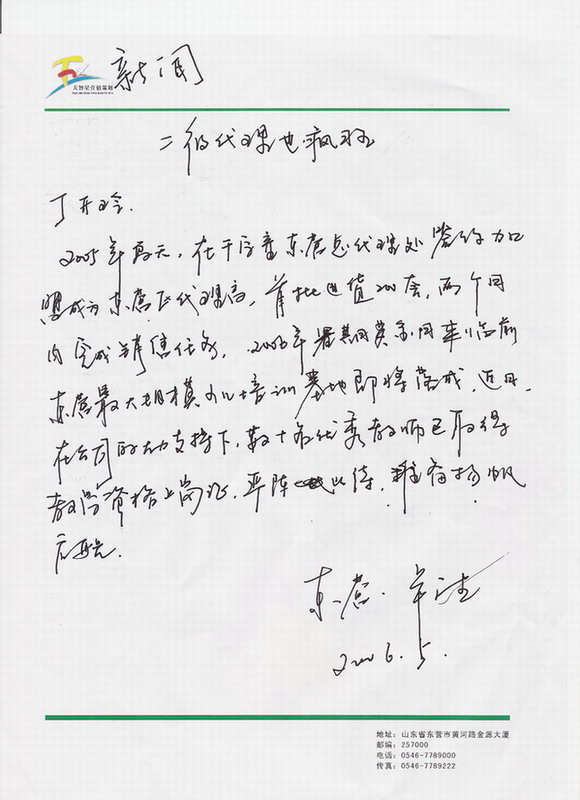 天智星营销策划
新闻
二级代理也疯狂
丁开玲.
2005年夏天,在干字童东营总代理处签约加
盟成为东营区代理商,首批进货200套,两个月
内完成销售任务,2006年暑期
东营最大规模少儿培训基地即将落成,近日,
在公司的大力支持下,数十名优秀教师已取得
教学资格上岗证,严阵以待,准备扬帆
启航.
东营.
2006.5.
地址:山东省东营市黄河路金源大厦
邮编:257000
电话:0546-7789000
传真:0546-7789222